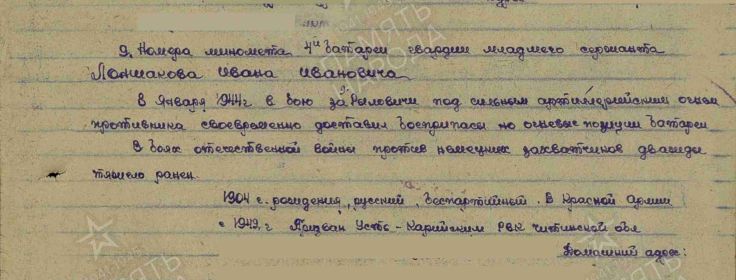 9. Номера миномета 4й батареи гвардии младшего сержанта
Лоншакова Ивана Ивановича
8 Января 1944 г. в бою за д. Рыловичи под сильным артиллерийским огнем
противника своевременно доставил боеприпасы на огневые позиции батареи
В боях отечественной войны против немецких захватчиков дважды
тяжело ранен.
1904 г. рождения, русский, беспартийный. В Красной Армии
с 1942 г Призван Усть-Карийским РВК Читинской обл
Домашний адрес:
ПАМЯТЬ
НАРОДА